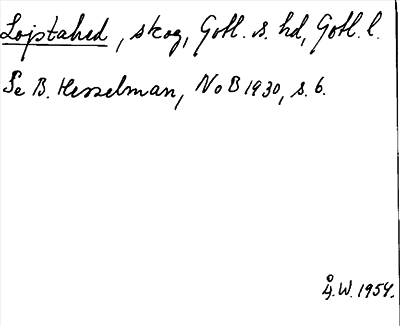 Lojstahed, skog, Gotl. s. hd, Gotl. l.
Se B. Hesselman, NoB 1930, s. 6.
Å.W. 1954.